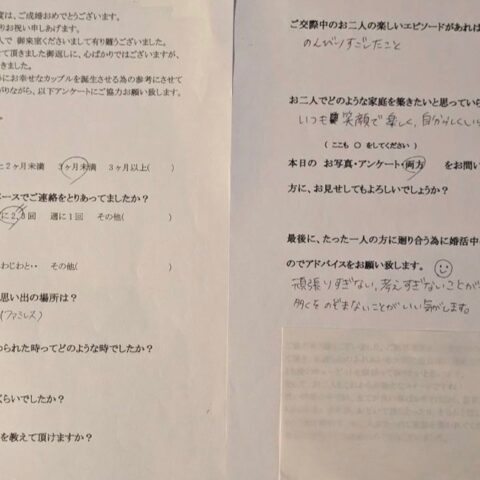 度は、ご成婚おめでとうございます。
りお祝い申しあげます。
人で 御来室くださいまして有り難うございました。
て頂きました御返しに、心ばかりではございますが、
きました。
うにお幸せなカップルを誕生させる為の参考にさせて
がりながら、以下アンケートにご協力お願い致します。
に2ヶ月未満 3ヶ月未満 3ヶ月以上( )
ペースでご連絡をとりあってましたか？
に2,3回 週に1回 その他( )
わじわと・・ その他( )
思い出の場所は？
(ファミレス)
められた時ってどのような時でしたか？
ぐらいでしたか？
を教えて頂けますか？
ご交際中のお二人の楽しいエピソードがあれば
のんびりすごしたこと
お二人でどのような家庭を築きたいと思ってい
いつも笑顔で楽しく、自分らしくい
( ここも 〇 をしてください )
本日の お写真・アンケート・両方 をお問い
方に、お見せしてもよろしいでしょうか？
最後に、たった一人の方に廻り合う為に婚活中
のでアドバイスをお願い致します。
頑張りすぎない、考えすぎないことが
多くをのぞまないことがいい気がします。